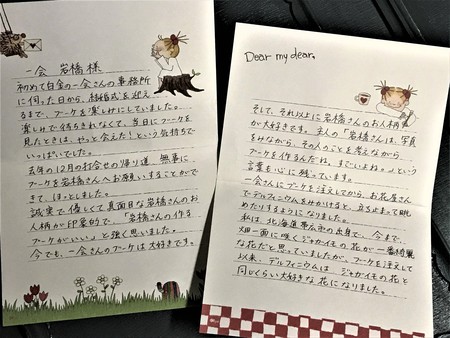 一会 岩橋 様
初めて白金の一会さんの事務所
に伺った日から、結婚式を迎え
るまで、ブーケを楽しみにしていました。
楽しみで待ちきれなくて、当日にブーケを
見たときは、やっと会えた！という気持ちで
いっぱいでした。
去年の12月の打合せの帰り道、無事に
ブーケを岩橋さんへお願いすることがで
きて、ほっとしました。
誠実で優しくて真面目な岩橋さんのお
人柄が印象的で、「岩橋さんの作る
ブーケがいい」と強く思いました。
今でも、一会さんのブーケは大好きです。
Dear my dear,
そして、それ以上に岩橋さんのお人柄
が大好きです。主人の「岩橋さんは、写真
をみながら、その人のことを考えながら
ブーケを作るんだね。すごいよね。」という
言葉も心に残っています。
一会さんにブーケを注文してから、お花屋さん
でデルフィニウムをみかけると、立ち止まって眺
めたりするようになりました。
私は、北海道帯広の出身で、今まで、
畑一面に咲くジャガイモの花が一番綺麗
な花だと思っていましたが、ブーケを注文して
以来、デルフィニウムは ジャガイモの花と
同じくらい大好きな花になりました。